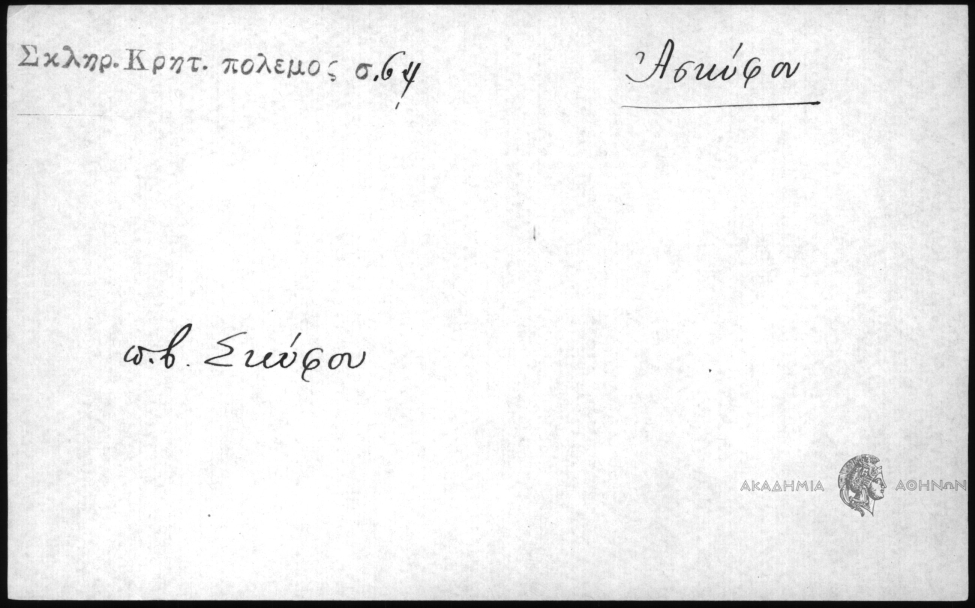 Σκληρ. Κρητ. πολεμος σ.64
Ἀσκύφου
π.β. Σκύφου
ΑΚΑΔΗΜΙΑ ΑΘΗΝΩΝ